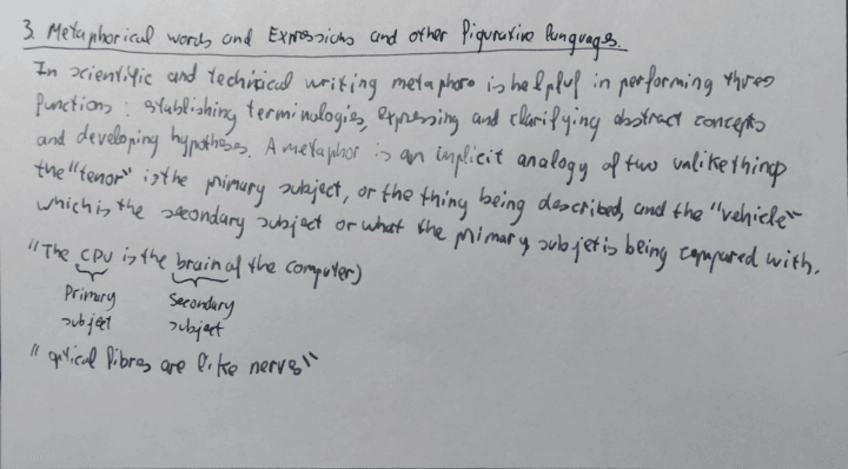 3. Metaphorical words and Expressions and other figurative languages.
In scientific and technical writing metaphor is helpful in performing three
functions: establishing terminologies, expressing and clarifying abstract concepts
and developing hypotheses. A metaphor is an implicit analogy of two unlike things
the "tenor" is the primary subject, or the thing being described, and the "vehicle"
which is the secondary subject or what the primary subjet is being compared with.
"The CPU is the brain of the computer)
Primary Secondary
subject subject
"optical fibres are like nerves"